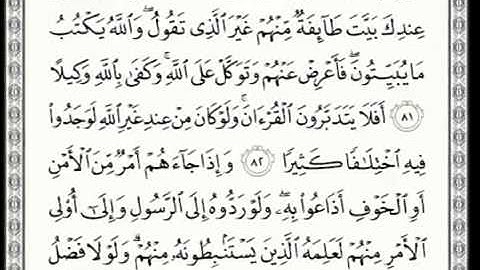 عِندِكَ بَيَّتَ طَآئِفَةٌ مِّنْهُمْ غَيْرَ ٱلَّذِى تَقُولُ ۖ وَٱللَّهُ يَكْتُبُ
مَا يُبَيِّتُونَ ۖ فَأَعْرِضْ عَنْهُمْ وَتَوَكَّلْ عَلَى ٱللَّهِ ۚ وَكَفَىٰ بِٱللَّهِ وَكِيلًا
٨١ أَفَلَا يَتَدَبَّرُونَ ٱلْقُرْءَانَ ۚ وَلَوْ كَانَ مِنْ عِندِ غَيْرِ ٱللَّهِ لَوَجَدُوا۟
فِيهِ ٱخْتِلَـٰفًا كَثِيرًا ٨٢ وَإِذَا جَآءَهُمْ أَمْرٌ مِّنَ ٱلْأَمْنِ
أَوِ ٱلْخَوْفِ أَذَاعُوا۟ بِهِۦ ۖ وَلَوْ رَدُّوهُ إِلَى ٱلرَّسُولِ وَإِلَىٰٓ أُو۟لِى
ٱلْأَمْرِ مِنْهُمْ لَعَلِمَهُ ٱلَّذِينَ يَسْتَنۢبِطُونَهُۥ مِنْهُمْ ۗ وَلَوْلَا فَضْلُ